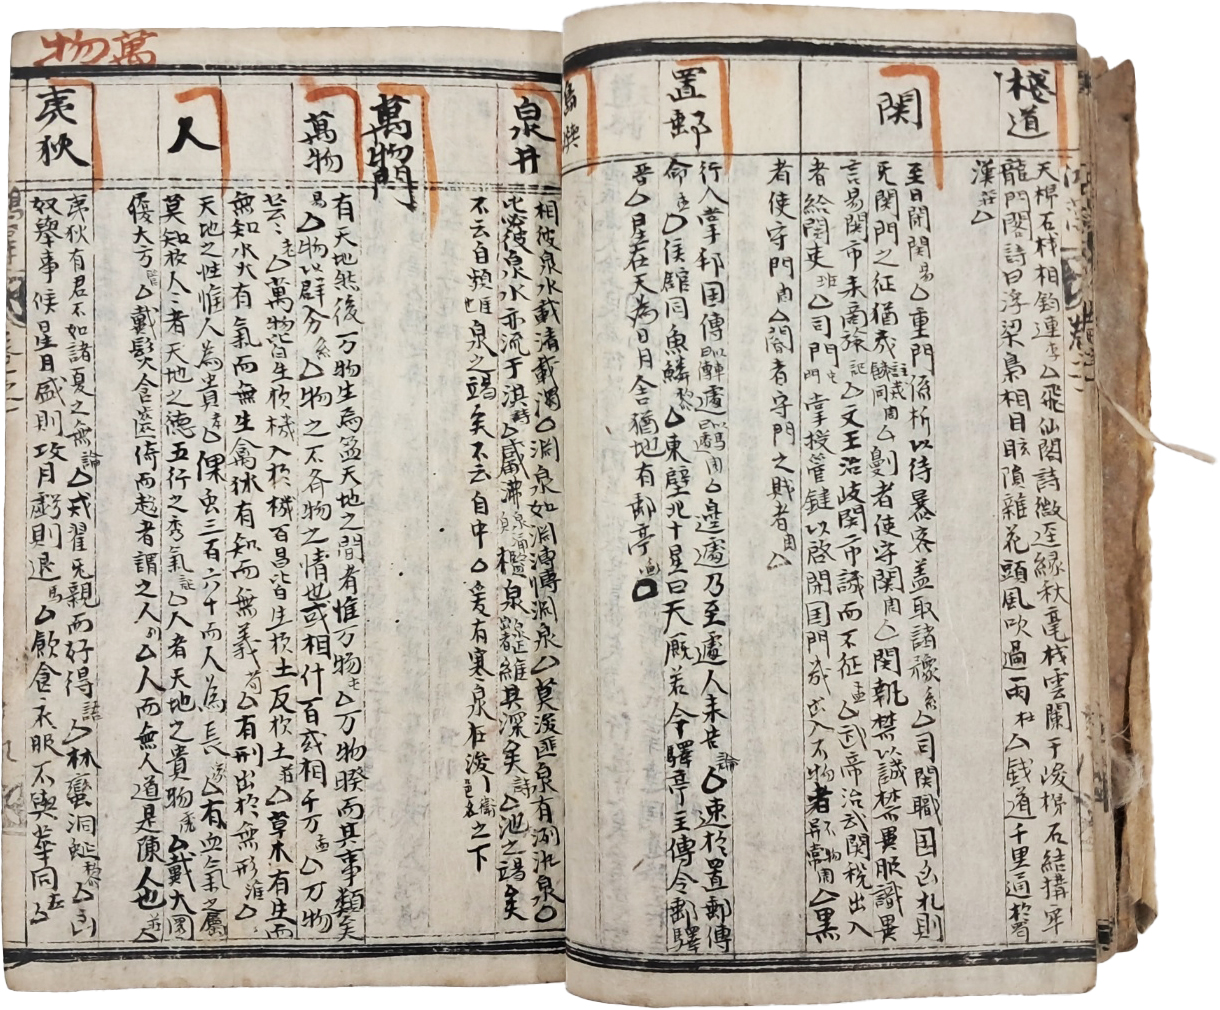 棧道
天梯石棧相鉤連李△飛仙閣詩微逕緣秋毫棧雲闌干峻梯石結構牢
龍門閣詩曰浮梁裊相目眩隕雜花頭風吹過雨杜△棧道千里通於蜀
漢莊△
関
至日閉関易△重門擊柝以待暴客盖取諸豫系△司関職国凶札則
旡関門之征猶幾
言易関市来商旅記△文王治岐関市譏而不征孟△武帝治武関税出入
者給関吏班△司門掌授管鍵以啓閉国門
者使守門周△閽者守門之賤者周△
置郵
行人掌邦国傳遽
邊遽乃至遽人来告論△速於置郵傳
命孟△侯館同魚鱗△東壁北十星曰天厩若今驛亭主傳令郵驛
晋△星在天為日月舍猶地有郵亭
泉井
相彼泉水載清載濁○淵泉如淵溥博淵泉△莫浚匪泉有冽氿泉○
毖彼泉水亦流于淇詩△觱沸檻泉維其深矣詩△池之竭矣
不云自頻泉之竭矣不云自中○爰有寒泉在浚衛邑名之下
萬物門
萬物
有天地然後万物生焉盈天地之間者惟万物屯△万物睽而其事類矣
易△物以群分系△物之不斉物之情也或相什百或相千万孟△万物
芸〻老△萬物皆生於機入於機百昌皆生於土反於土莊△草木有生而
無知水火有氣而無生禽獣有知而無義荀△有形出於無形淮△
人
天地之性惟人為貴孝△倮虫三百六十而人為長△有血氣之属
莫知於人〻者天地之德五行之秀氣記△人者天地之貴物△戴大圜
履大方△戴髮含齒倚而趍者謂之人列△人而無人道是陳人也莊△
夷狄
夷狄有君不如諸夏之無論△戎翟旡親而好得語△林蠻洞蜑
奴擧事候星月盛則攻月虧則退馬△飲食衣服不與華同左△
萬物